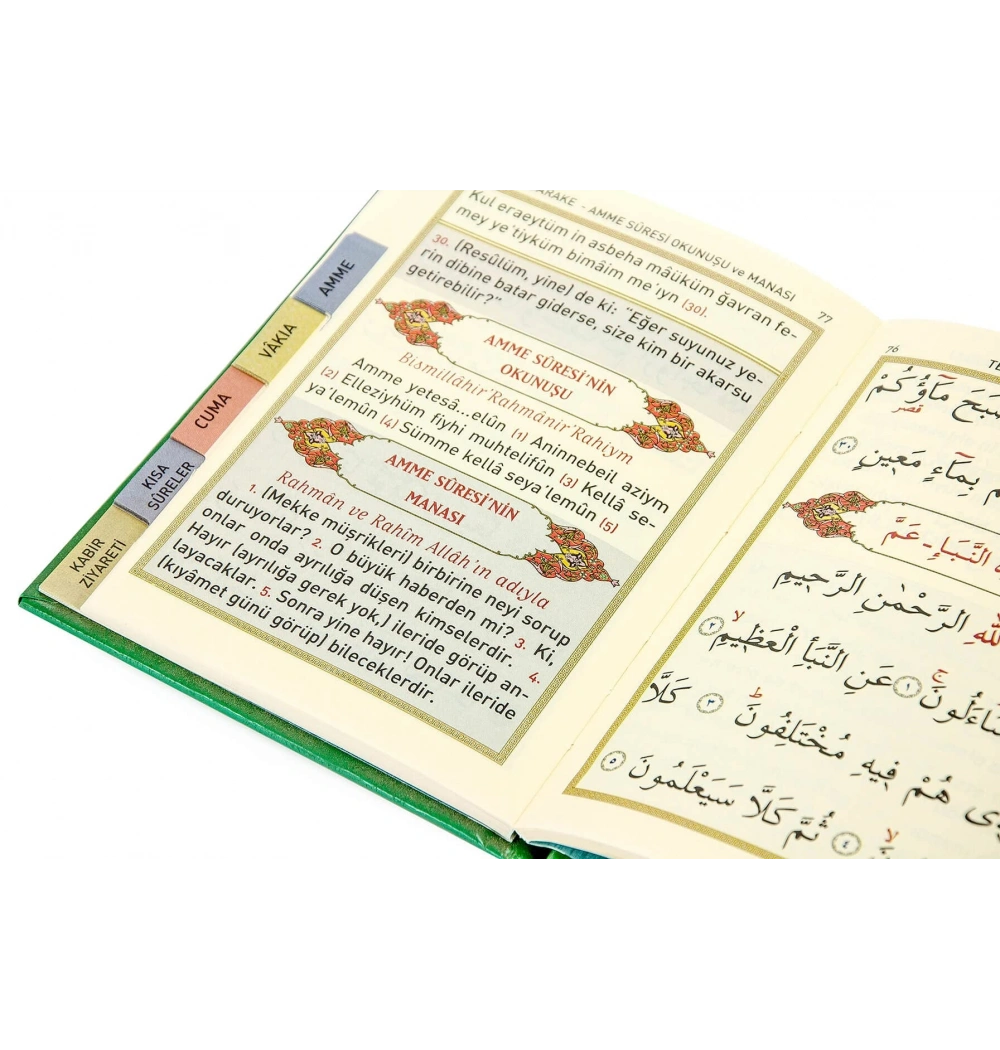 ARAKE - AMME SÛRESİ OKUNUŞU ve MANASI
77
Kul eraeytüm in asbeha mâüküm ğavran fe-
mey ye'tiyküm bimâim me'ıyn (30).
30. (Resûlüm, yine) de ki: “Eğer suyunuz ye-
rin dibine batar giderse, size kim bir akarsu
getirebilir?”
AMME SÛRESİ'NİN
OKUNUŞU
Bismillâhir'Rahmânir'Rahiym
Amme yetesâ...elûn (1) Aninnebeil azıym
(2) Elleziyhüm fiyhi muhtelifûn (3) Kellâ se-
ya'lemûn (4) Sümme kellâ seya'lemûn (5)
AMME SÛRESİ'NİN
MANASI
Rahmân ve Rahîm Allâh'ın adıyla
1. (Mekke müşrikleri) birbirine neyi sorup
duruyorlar? 2. O büyük haberden mi? 3. Ki,
onlar onda ayrılığa düşen kimselerdir. 4.
Hayır (ayrılığa gerek yok,) ileride görüp an-
layacaklar. 5. Sonra yine hayır! Onlar ileride
(kıyâmet günü görüp) bileceklerdir.
AMME
VÂKIA
CUMA
KISA
SÛRELER
KABİR
ZİYARETİ
76
TE
مَاؤُ۬كُمْ
قصر
بِمَاءٍ مَعينٍ ﴿٣٠﴾
النَّبَاِ - عَمَّ
الرَّحْمٰنِ الرَّحيمِ
﴿١﴾ عَنِ النَّبَأِ الْعَظيمِ ﴿٢﴾
هُمْ فيهِ مُخْتَلِفُونَ ﴿٣﴾ كَلَّا
﴿٤﴾ ثُمَّ كَلَّا سَيَعْلَمُونَ ﴿٥﴾